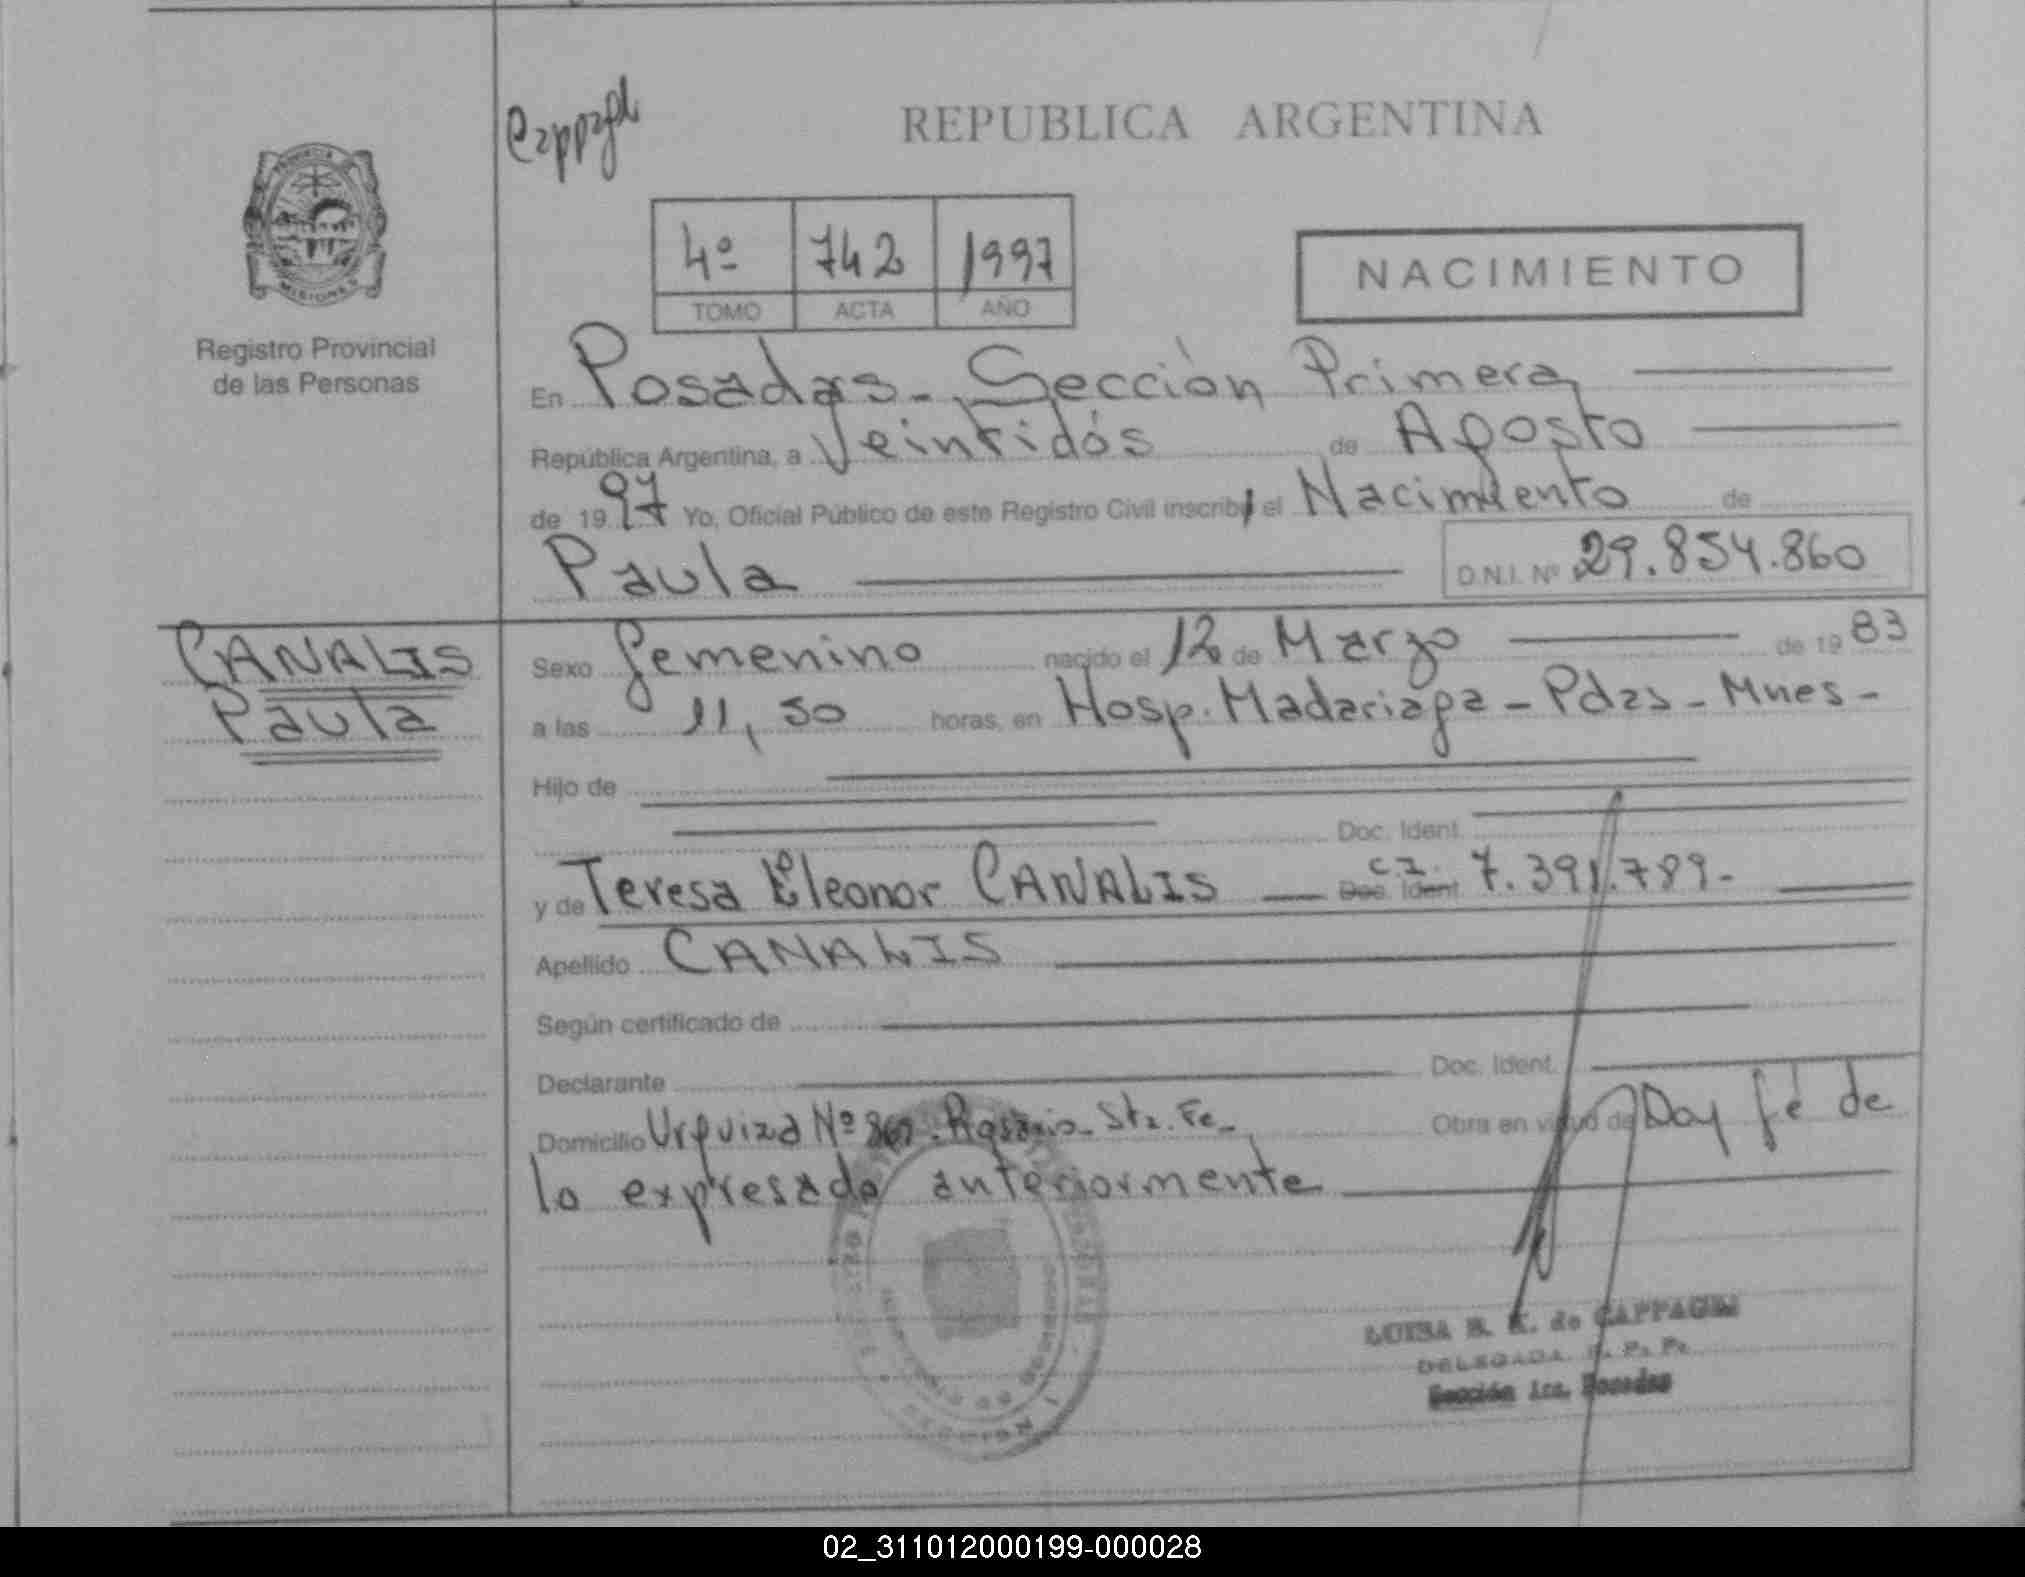 Cappagli
REPUBLICA ARGENTINA
PROVINCIA
MISIONES
Registro Provincial
de las Personas
4º 742 1997
TOMO ACTA AÑO
NACIMIENTO
En Posadas - Sección Primera
República Argentina, a Veintidós de Agosto
de 1997 Yo, Oficial Público de este Registro Civil inscribí el Nacimiento de
Paula D.N.I. Nº 29.854.860
CANALIS
Paula
Sexo femenino nacido el 12 de Marzo de 1983
a las 11,50 horas, en Hosp. Madariaga - Pdas - Mnes -
Hijo de
Doc. Ident.
y de Teresa Eleonor CANALIS C.I. Doc. Ident. 7.391.789.-
Apellido CANALIS
Según certificado de
Declarante Doc. Ident.
Domicilio Urquiza Nº Rosario - Sta. Fe - Obra en virtud de Doy fé de
lo expresado anteriormente
LUISA B. K. de CAPPAGLI
DELEGADA R. P. P.
Sección 1ra. Posadas
02_311012000199-000028